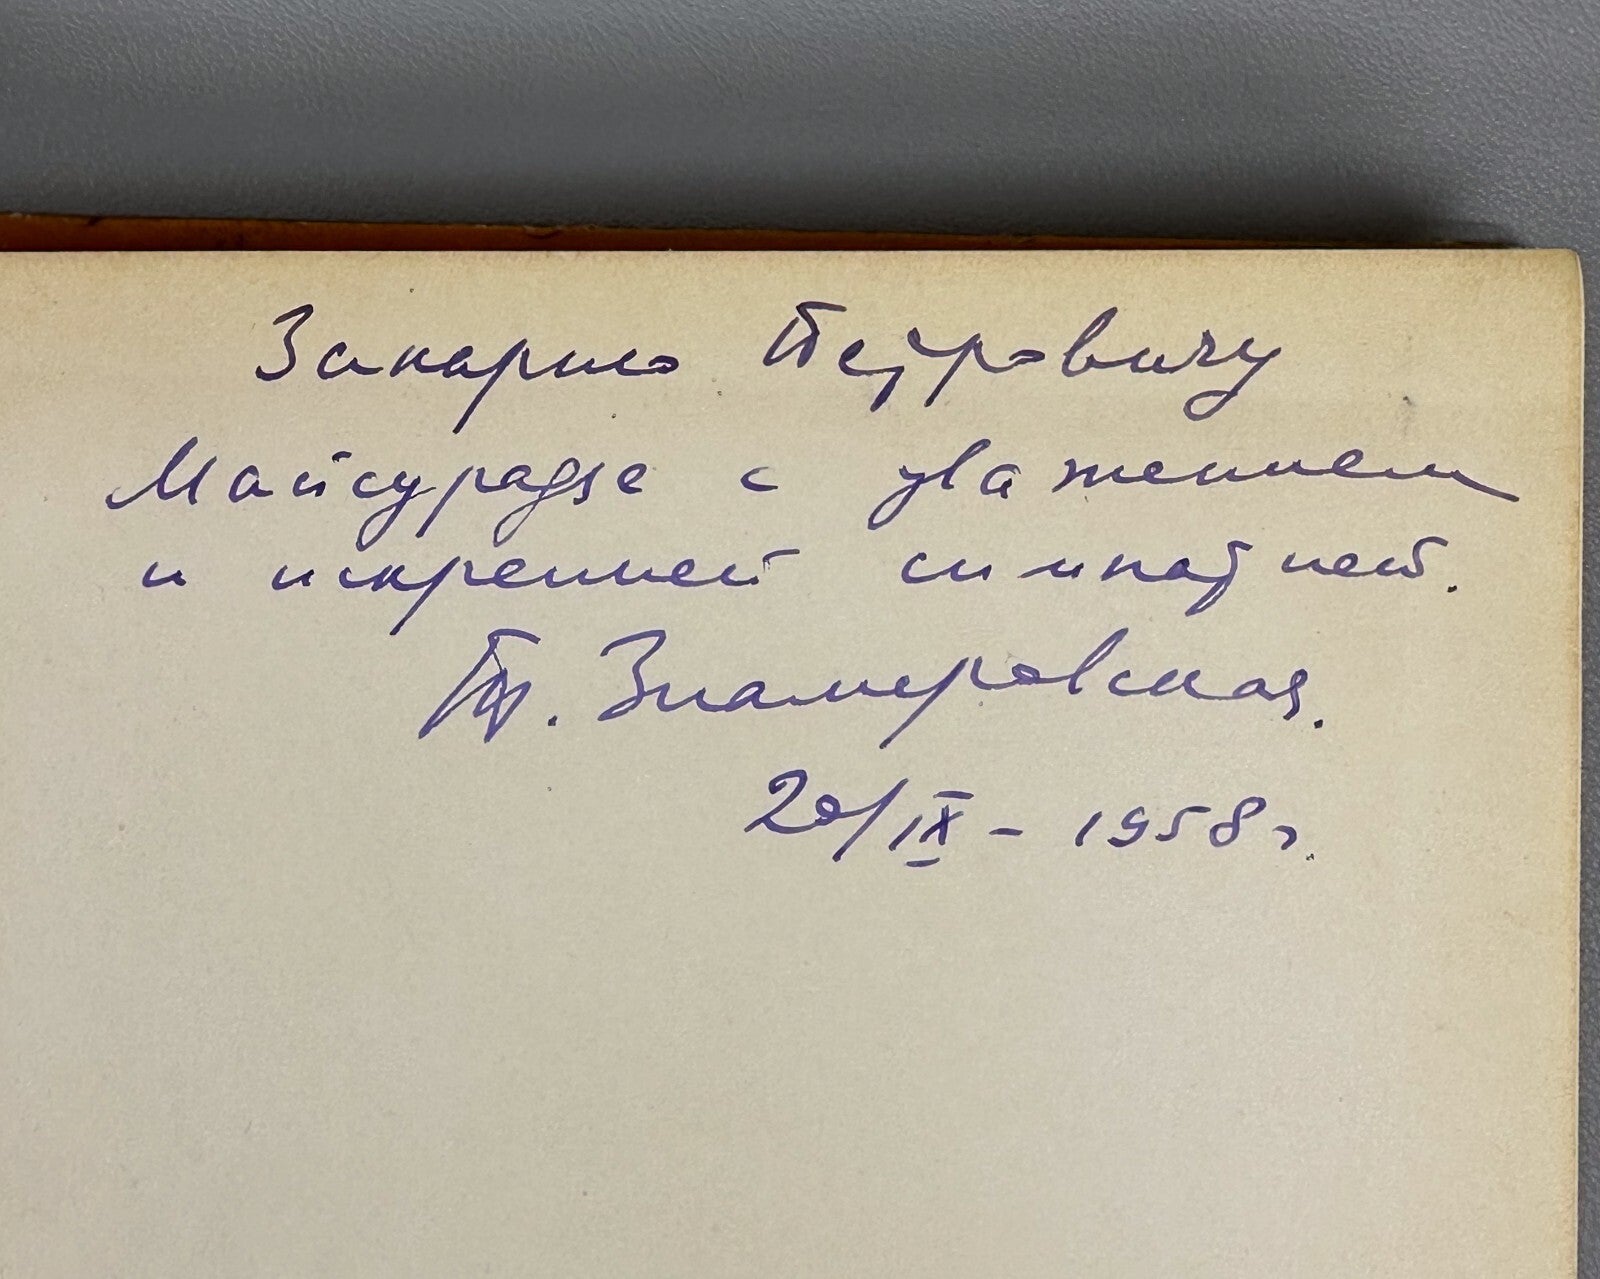 Закарию Петровичу
Майсурадзе с уважением
и искренней симпатией.
Т. Знамеровская.
20/IX – 1958 г.